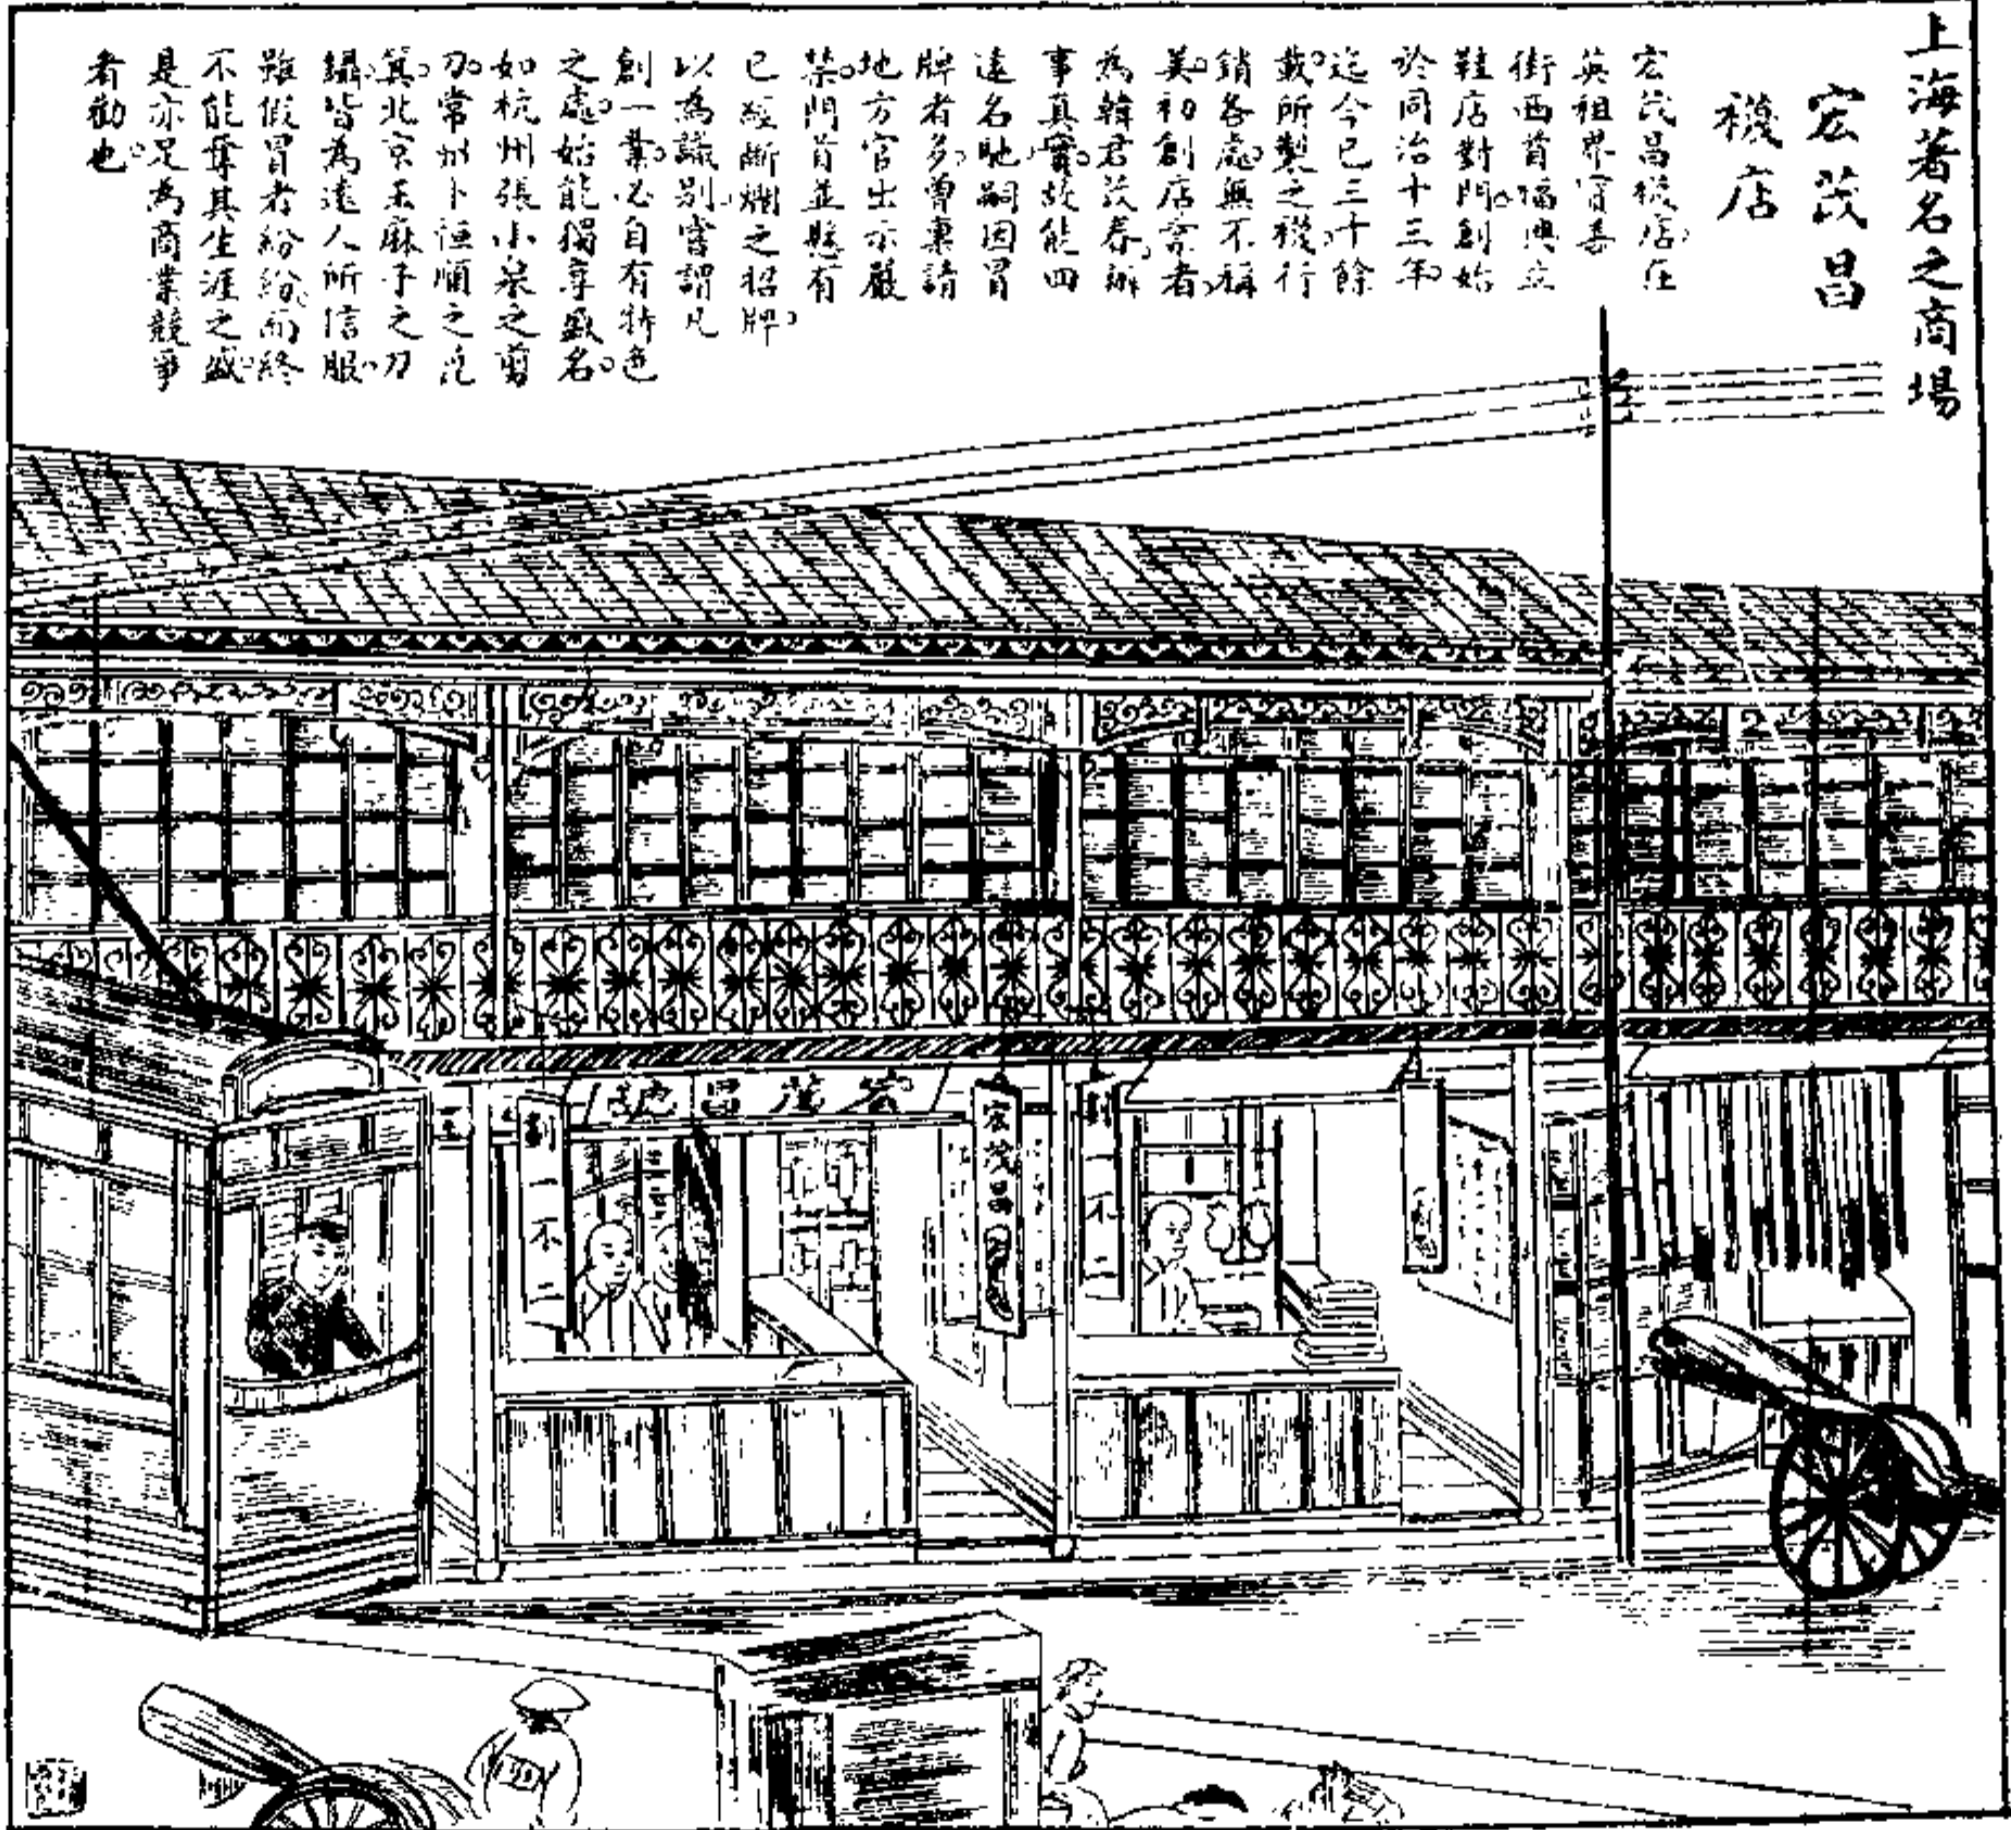 上海著名之商場
宏茂昌
襪店
宏茂昌襪店在
英租界寶善
街西首福興立
鞋店對門創始
於同治十三年
迄今已三十餘
載所製之襪行
銷各處無不稱
美初創店業者
為韓君茂春辦
事真實故能四
遠名馳嗣因冒
牌者多曾稟請
地方官出示嚴
禁門首並懸有
已經斷爛之招牌
以為識別嘗謂凡
創一業必自有特色
之處始能獨享盛名
如杭州張小泉之剪
刀常州卜恒順之篦
箕北京王麻子之刀
鑷皆為遠人所信服
雖假冒者紛紛而終
不能奪其生涯之盛
是亦足為商業競爭
者勸也
宏茂昌號
劃一不二
宏茂昌
劃一不二